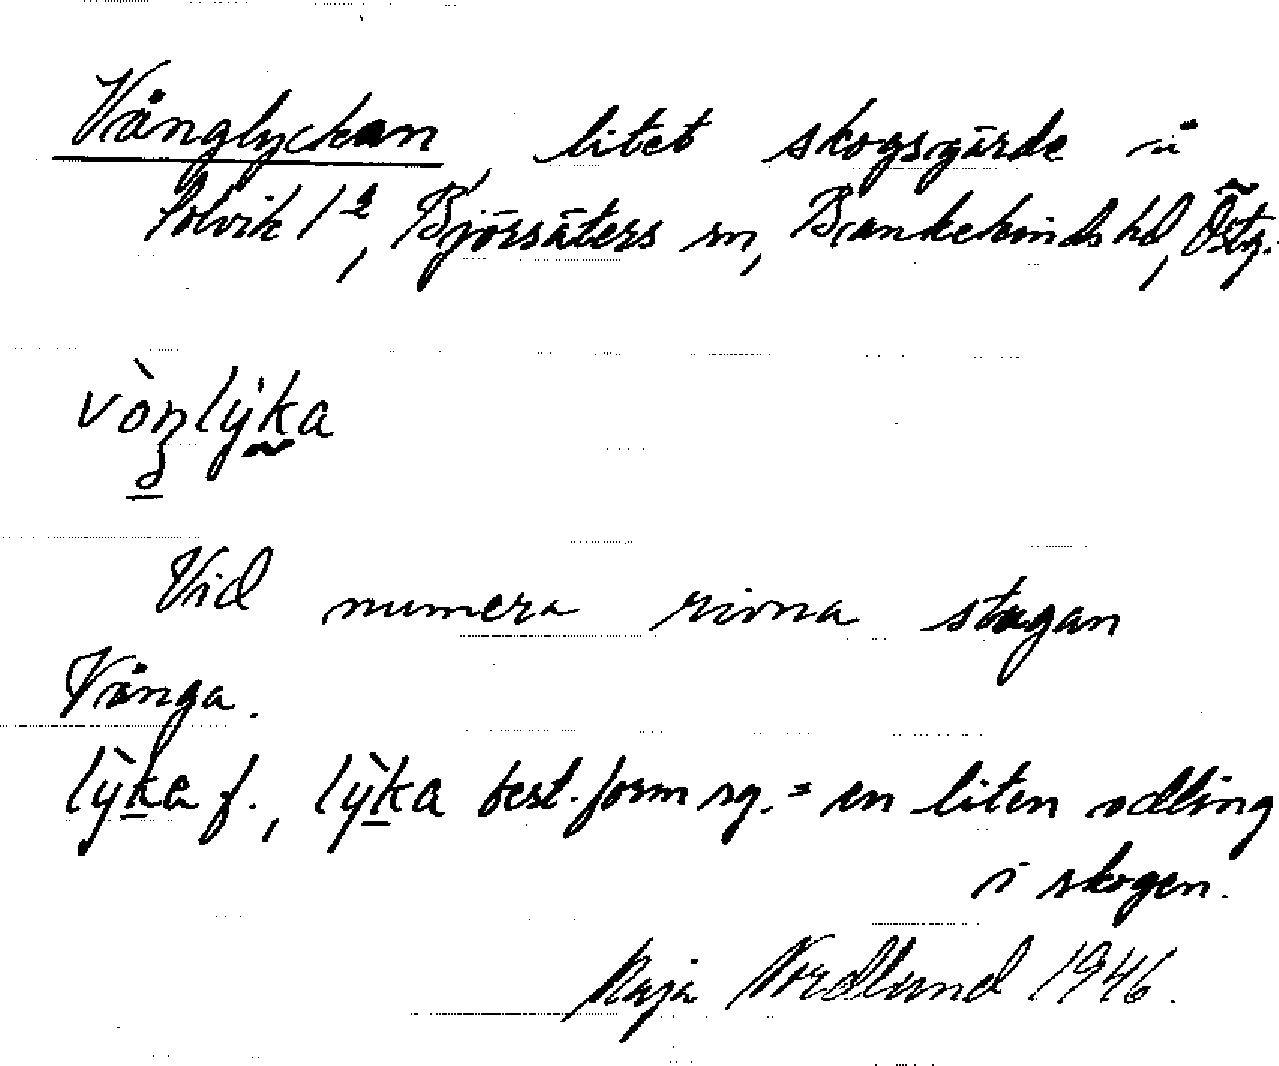 Vånglyckan, litet skogsgärde å
Solvik 1², Björsäters sn, Bankekinds hd, Östg.
vòŋlyka
Vid numera rivna stugan
Vånga.
lỳka f., lỳka best. form sg. = en liten odling
i skogen.
Maja Nordlund 1946.